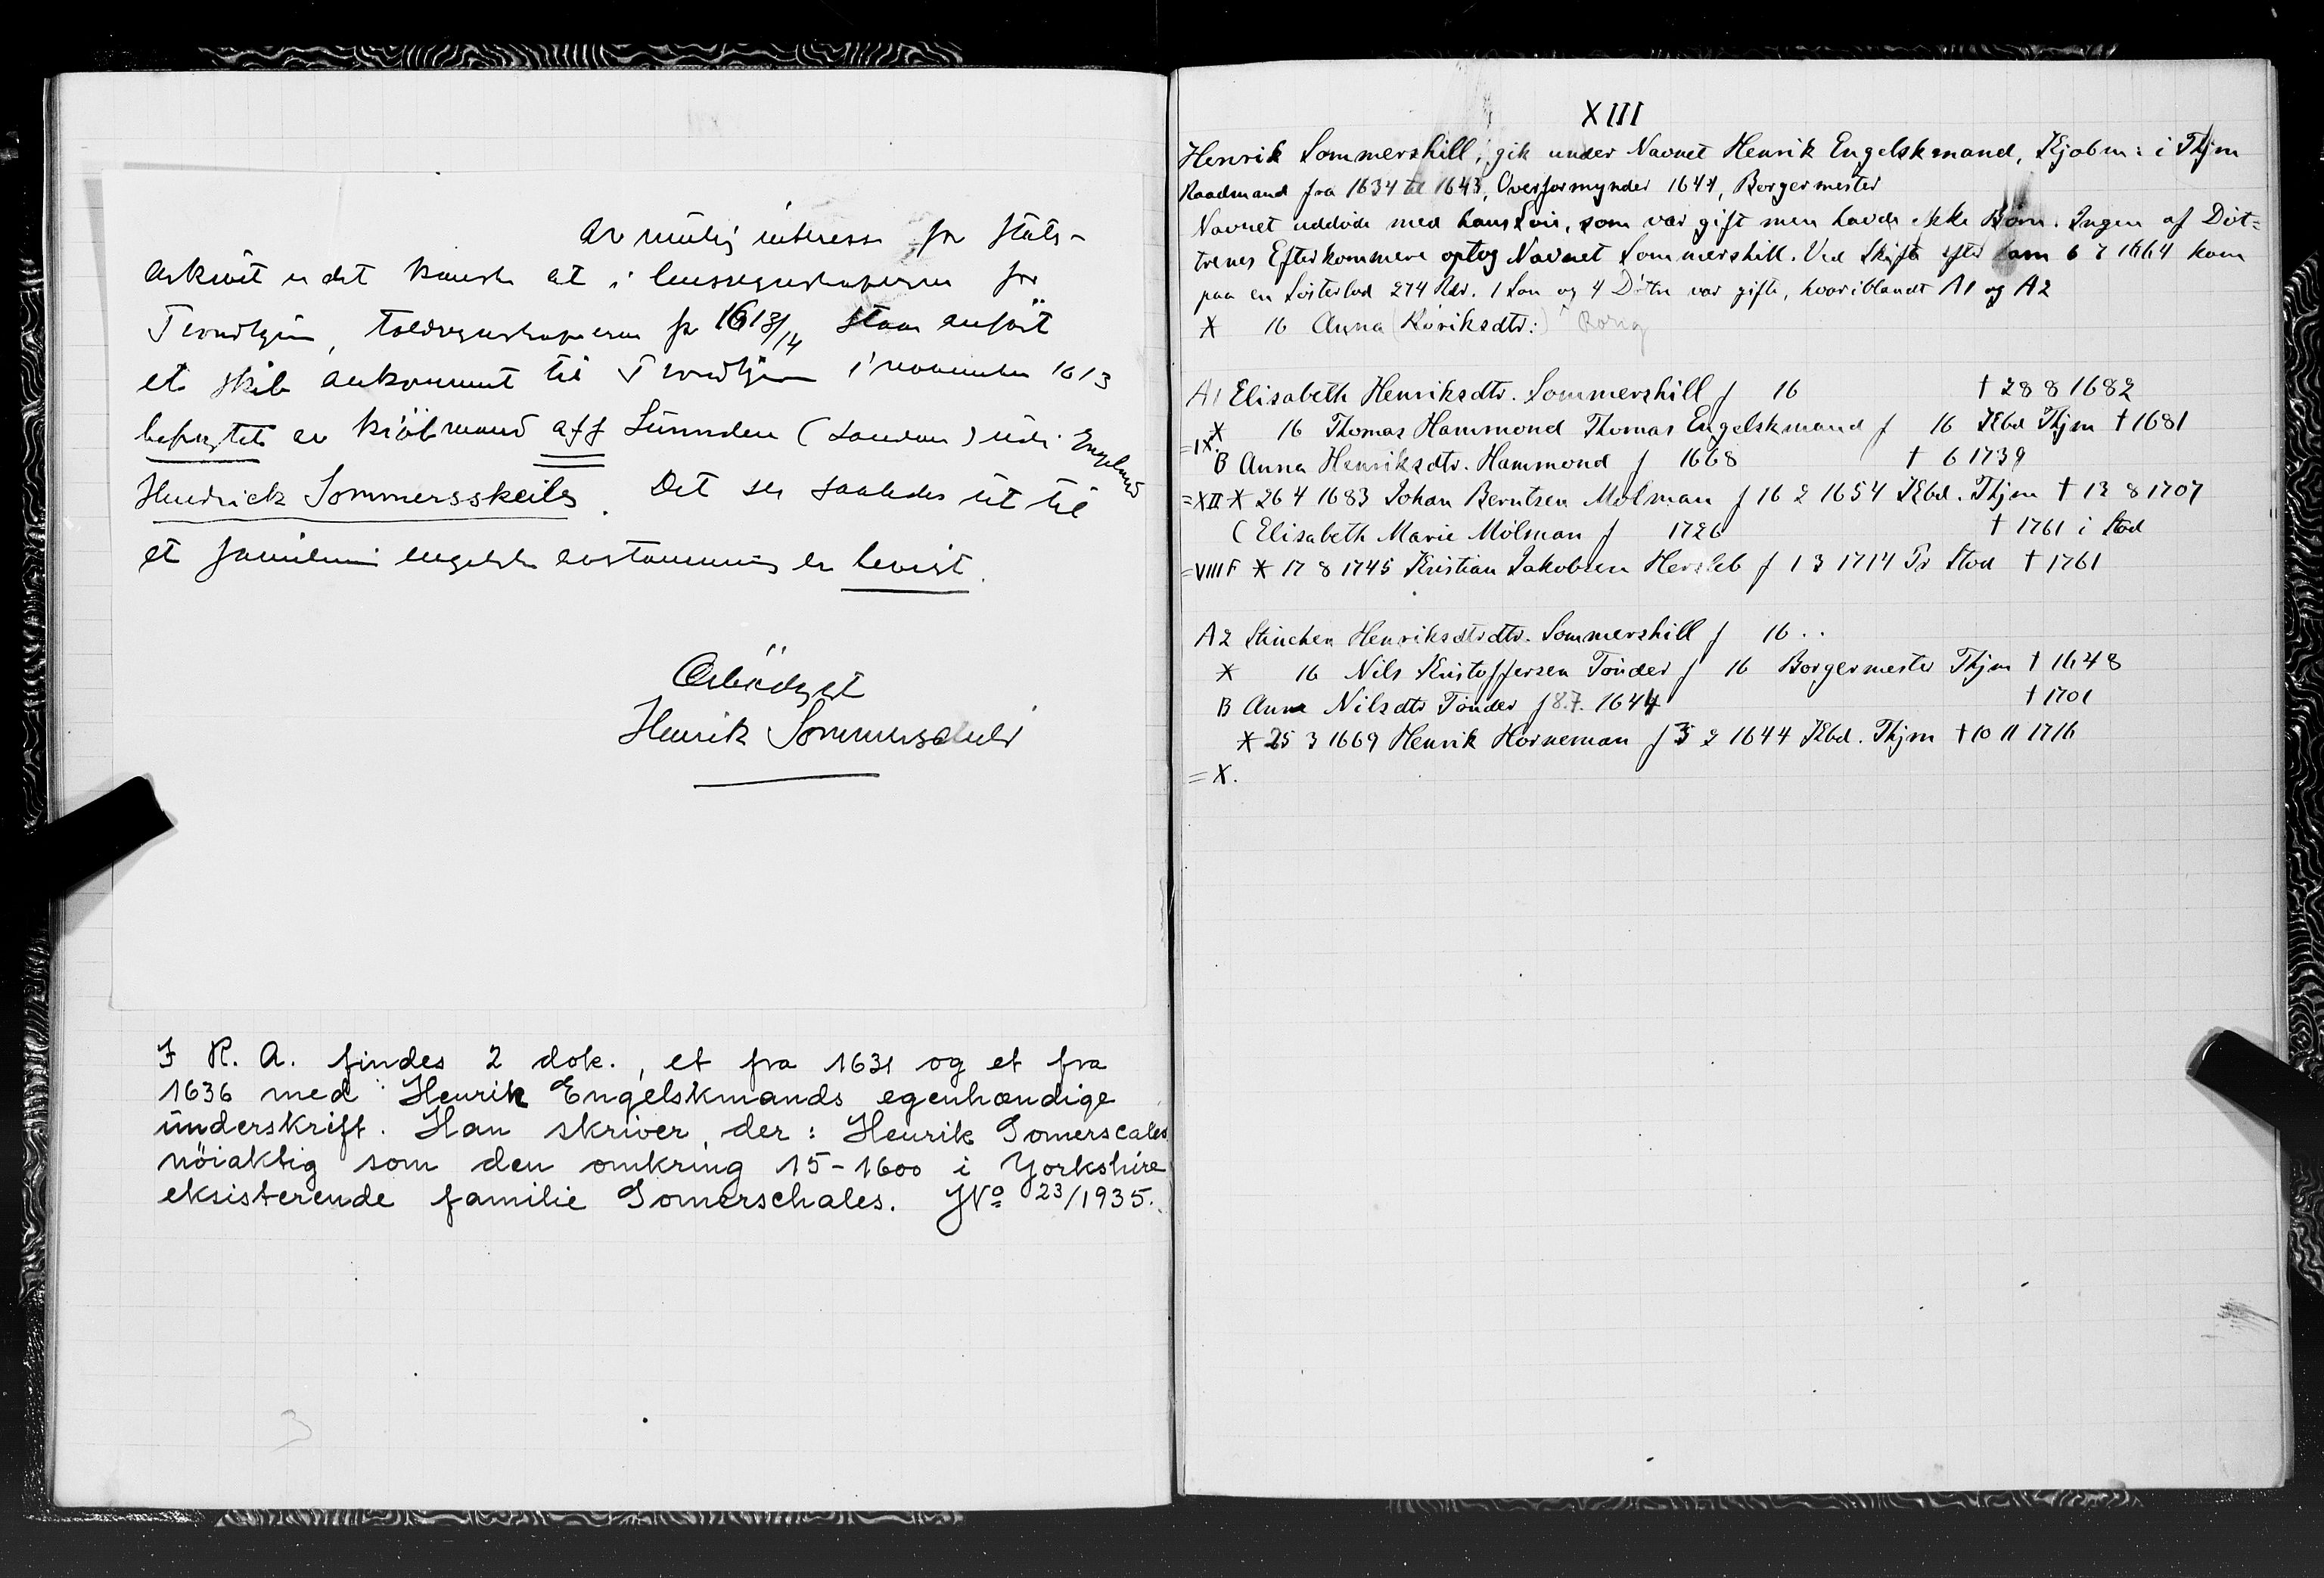 Av mulig interesse for stats-
arkivet er det kanske at i lensregnskaperne for
Trondhjem, toldregnskaperne for 1613/14 staar anført
et skib ankommet til Trondhjem i november 1613
befragtet av kiöbmand aff Lunnden (London) udi Engeland
Hendrick Sommersskeils. Det ser saaledes ut til
at familiens engelske avstamning er bevist.
Ærbødigst
Henrik
I R. A. findes 2 dok., et fra 1631 og et fra
1636 med Henrik Engelskmands egenhændige
underskrift. Han skriver der: Henrik Somerscales
nöiaktig som den omkring 15-1600 i Yorkshire
eksisterende familie Somerschales. JNo 23/1935.
3
XIII
Henrik Sommershill, gik under Navnet Henrik Engelskmand, Kjøbm: i Thjm
Raadmand fra 1634 til 1643, Overformynder 1644, Borgermester
Navnet uddøde med hans Søn, som var gift men havde ikke Børn. Ingen af Døt-
trenes Efterkommere optog Navnet Sommershill. Ved Skifte efter ham 6 7 1664 kom
paa en Søsterlod 274 Rdr. 1 Søn og 4 Døtre var gifte, hvoriblandt A1 og A2
X 16 Anna (Röriksdtr:) Rörig
A1 Elisabeth Henriksdtr. Sommershill f 16 † 28 8 1682
X 16 Thomas Hammond Thomas Engelskmand f 16 Kbd Thjm † 1681
=IX.
B Anna Henriksdtr. Hammond f 1668 † 6 1739
=XII X 26 4 1683 Johan Berntsen Mölman f 16 2 1654 Kbd. Thjm † 13 8 1707
C Elisabeth Marie Mölman f 1726 † 1761 i Stod
=VIII F X 17 8 1745 Kristian Jakobsen Hersleb f 1 3 1714 Pr Stod † 1761
A2 Stinchen Henriksdtrdtr. Sommershill f 16 . .
X 16 Nils Kristoffersen Tönder f 16 Borgermester Thjm † 1648
B Anne Nilsdtr Tönder f 8.7. 1644 † 1701
X 25 3 1669 Henrik Horneman f 3 2 1644 Kbd. Thjm † 10 11 1716
= X.